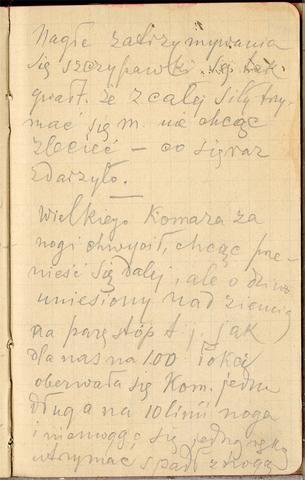 Nagłe zatrzymywania
się szczypawki są tak
gwałt. że z całej siły trzy-
mać się m. nie chcąc
zlecieć — co się raz
zdarzyło.
Wielkiego komara za
nogi chwycił, chcąc prze-
nieść się dalej, ale o dziwo
uniesiony nad ziemią
na parę stóp t. j. jak
dla nas na 100 łokci
oberwała się Kom. jedna
długa na 10 linii noga
i niemogąc się jedną ręką
utrzymać spadł z nogą